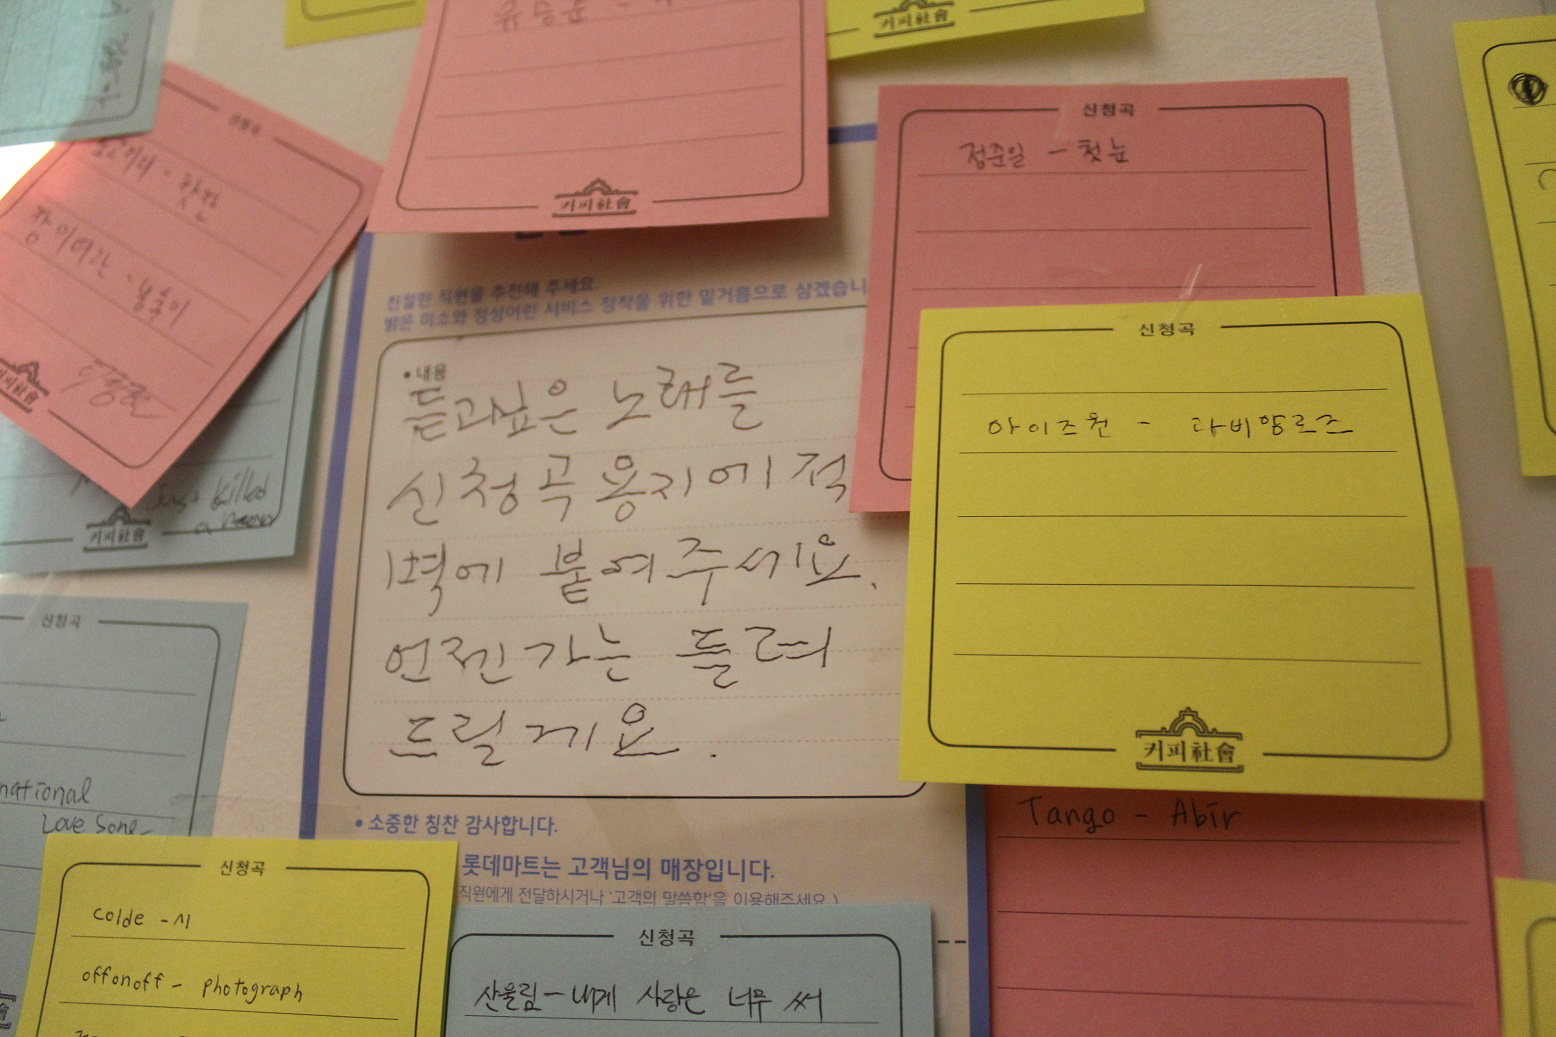 커피社會
커피社會
신청곡
정준일 - 첫눈
신청곡
친절한 직원을 추천해 주세요.
밝은 미소와 정성어린 서비스 정착을 위한 밑거름으로 삼겠습니
• 내용
듣고싶은 노래를
신청곡 용지에 적
벽에 붙여주세요.
언젠가는 들려
드릴게요.
신청곡
아이즈원 - 라비앙로즈
커피社會
장미여관 -
killed
커피社會
신청곡
national
Love Song
• 소중한 칭찬 감사합니다.
롯데마트는 고객님의 매장입니다.
직원에게 전달하시거나 '고객의 말씀함'을 이용해주세요.)
Tango - Abir
신청곡
Colde - 시
offonoff - photograph
신청곡
산울림 - 내게 사랑은 너무 써